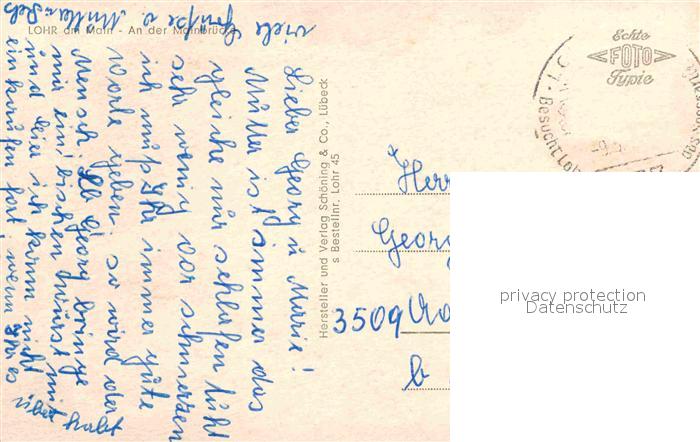 LOHR am Main - An der Mainbrücke
Lieber Georg u Marie!
Mutter ist immer das
gleiche nur schlafen tuht
sehr wenig vor schmerzen
ich muß Ihr immer gute
Worte geben, so wird der
Mensch Georg bringe
mir ein bischen Wurst mit
und Eier ich kann nicht
einkaufen fort wenn Ihr es
über habt
viele Grüße v. Mutter
Hersteller und Verlag Schöning & Co., Lübeck
s Bestellnr. Lohr 45
Echte
FOTO
Typie
Besucht Lohr
Herr
Georg
3509
b
privacy protection
Datenschutz